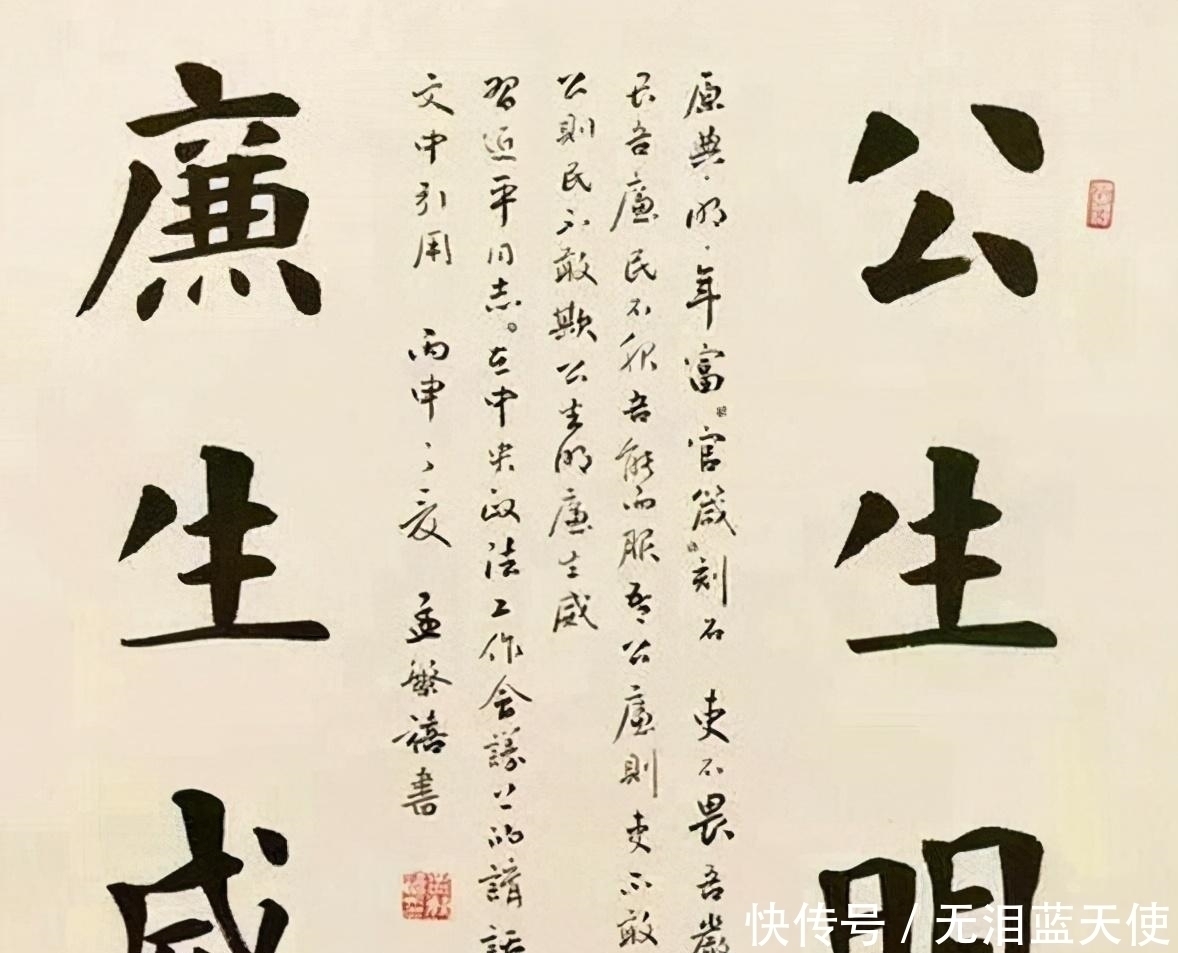 公生明
原典·明·年富。官箴刻石 吏不畏吾嚴
吾廉民不服吾能而服吾公廉則吏不敢
公則民不敢欺公生明廉生威
習近平同志。在中央政法工作會議上的講話
文中引用 丙申之夏 孟繁禧書
廉生威
快传号/无泪蓝天使